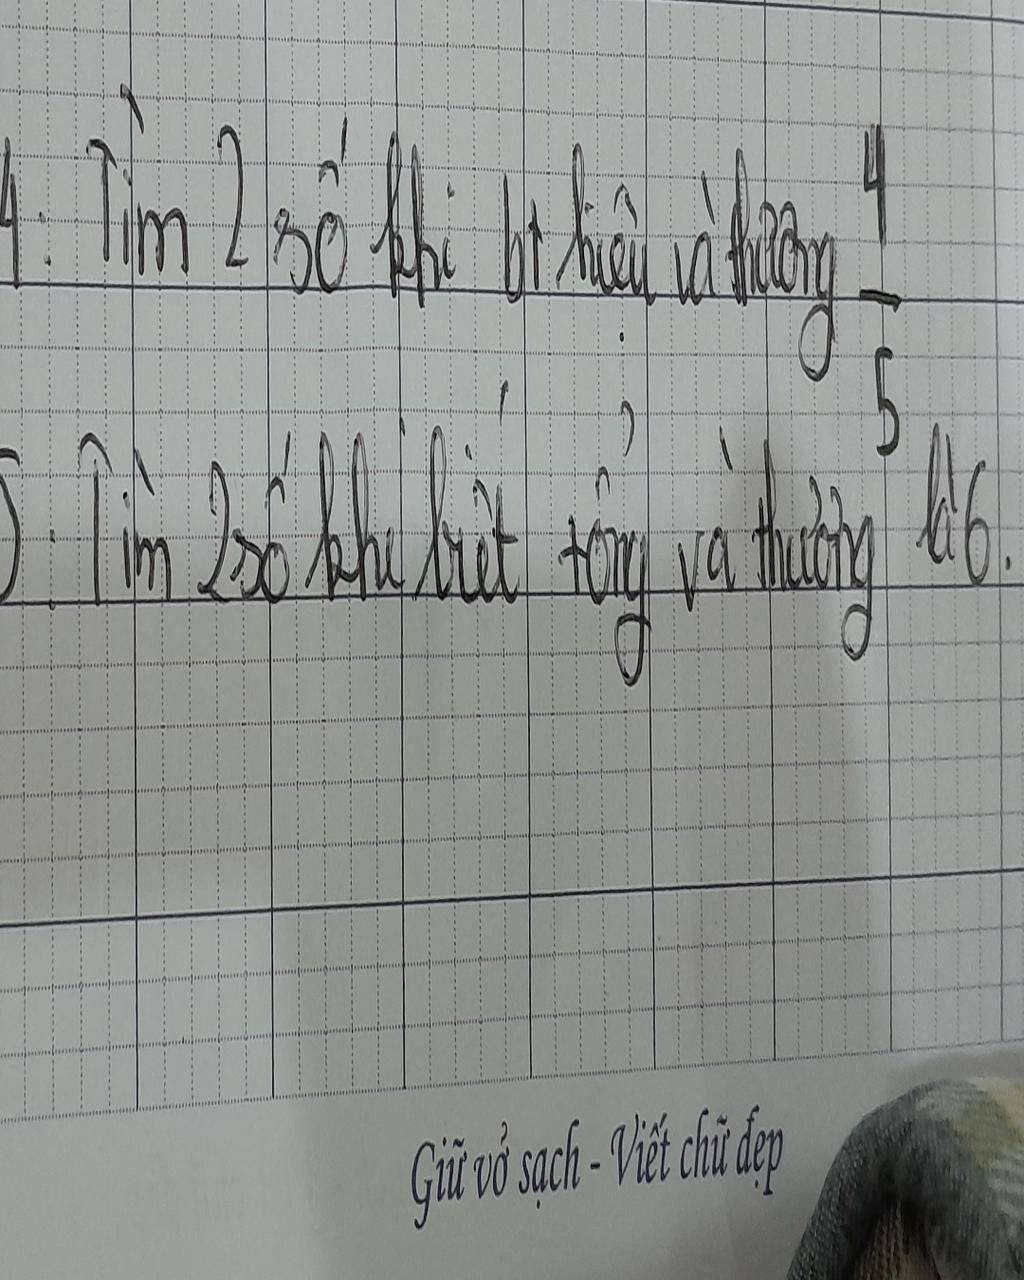 4: Tìm 2 số khi bt hiệu và thương 4/5
5: Tìm 2 số khi biết tổng và thương là 6.
Giữ vở sạch - Viết chữ đẹp